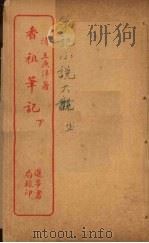 小說大觀
清王漁洋著
香祖筆記
下
進步書
局校印